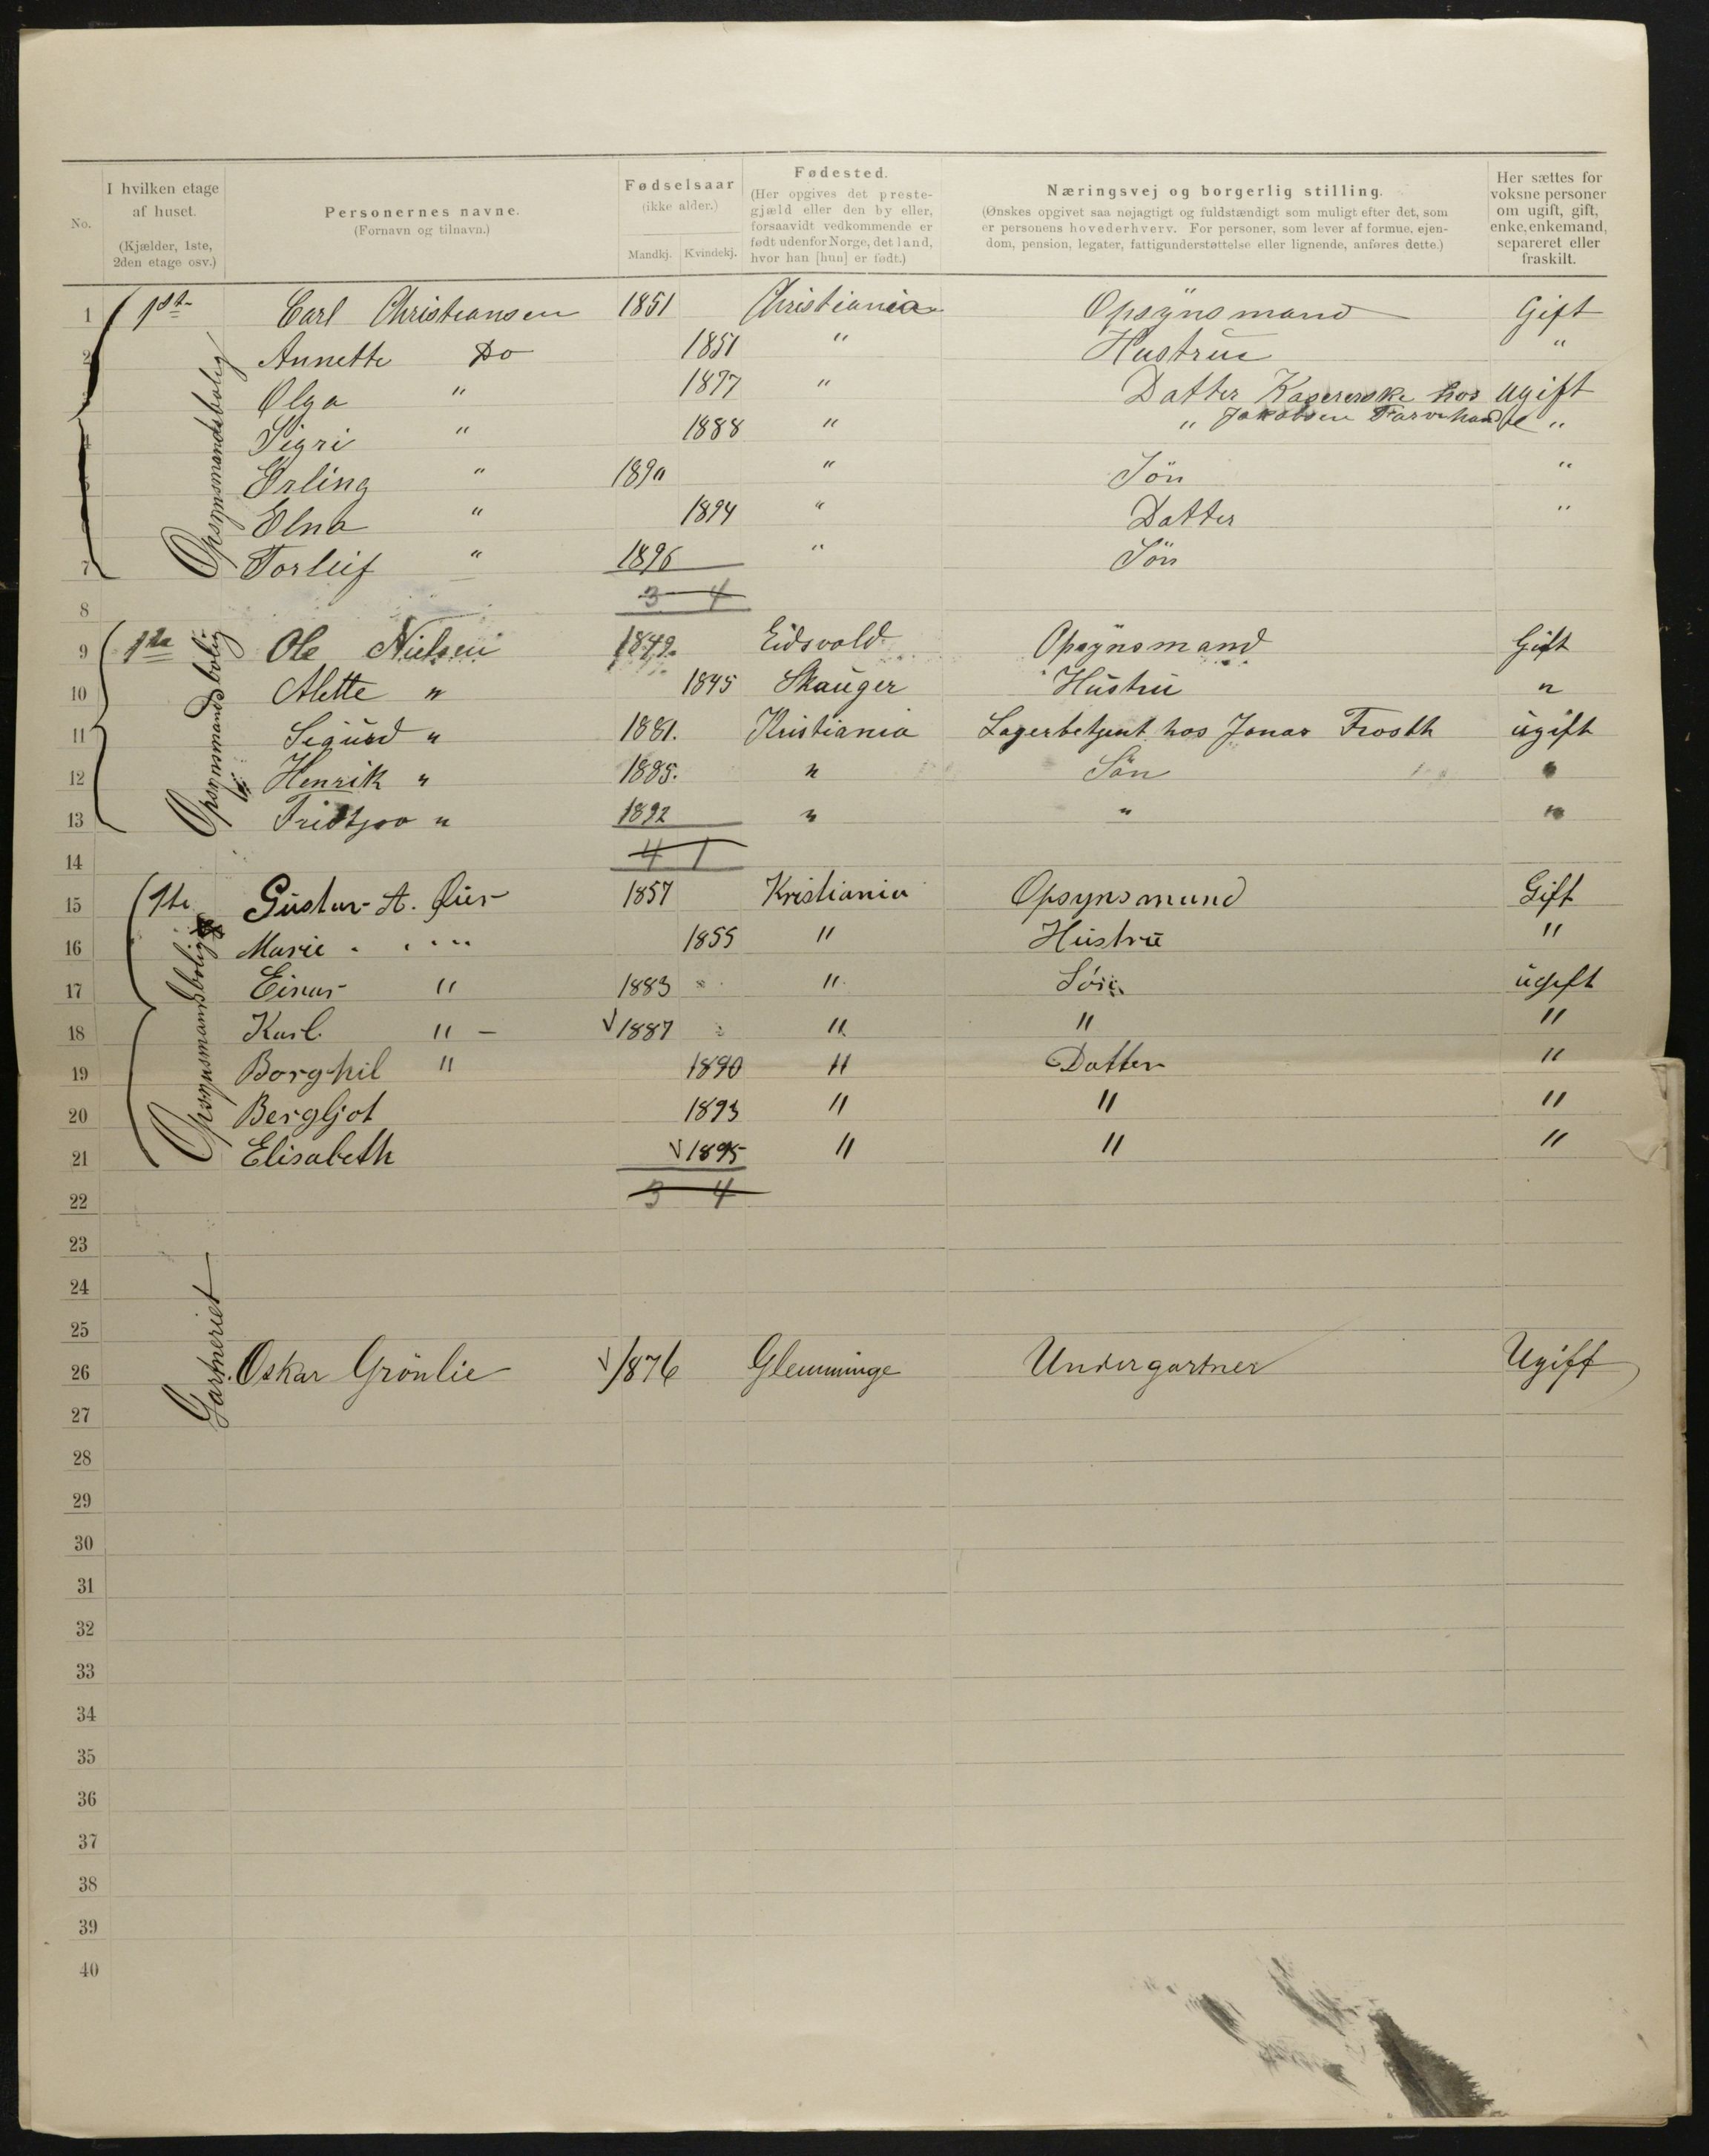 No.
I hvilken etage af huset.
(Kjælder, 1ste, 2den etage osv.)
Personernes navne.
(Fornavn og tilnavn.)
Fødselsaar
(ikke alder.)
Mandkj. Kvindekj.
Fødested.
(Her opgives det preste-
gjæld eller den by eller,
forsaavidt vedkommende er
født udenfor Norge, det land,
hvor han [hun] er født.)
Næringsvej og borgerlig stilling.
(Ønskes opgivet saa nøjagtigt og fuldstændigt som muligt efter det, som
er personens hovederhverv. For personer, som lever af formue, ejen-
dom, pension, legater, fattigunderstøttelse eller lignende, anføres dette.)
Her sættes for
voksne personer
om ugift, gift,
enke, enkemand,
separeret eller
fraskilt.
Opsynsmandsbolig
1 1st Carl Christiansen 1851 Christiania Opsynsmand Gift
2 Annette Do 1851 " Hustru "
Olga " 1877 " Datter Kasererske hos ugift
4 Sigri " 1888 " " Jakobsen Farvehandel "
Erling " 1890 " Sön "
Elna " 1894 " Datter "
7 Torleif " 1896 " Sön
8 3 4
Opsynsmandsbolig
9 1ste Ole Nielsen 1849. Eidsvold Opsynsmand Gift
10 Alette " 1845 Skauger Hustru "
11 Sigurd " 1881. Kristiania Lagerbetjent hos Jonas Frosth ugift
12 Henrik " 1885. " Sön "
13 Fridtjov " 1892 " " "
14 4 1
Opsynsmandsbolig
15 1ste Gustav A. 1857 Kristiania Opsynsmand Gift
16 Marie " " 1855 " Hustru "
17 Einar " 1883 " Sön ugift
18 Karl " 1887 " " "
19 Borghil " 1890 " Datter "
20 Bergljot 1893 " " "
21 Elisabeth 1895 " " "
22 3 4
23
24
25
Gartneriet
26 Oskar Grönlie 1876 Glemminge Undergartner Ugift
27
28
29
30
31
32
33
34
35
36
37
38
39
40